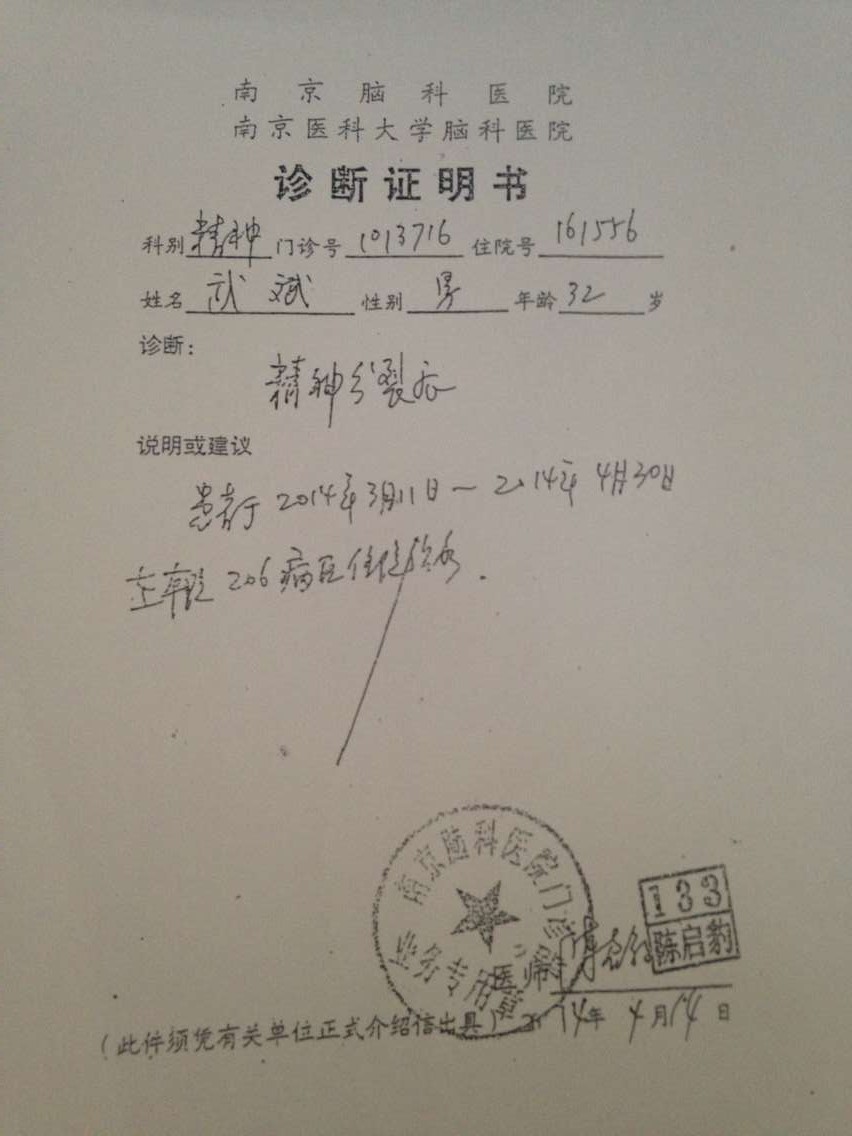 南京脑科医院
南京医科大学脑科医院
诊断证明书
科别 精神 门诊号 1013716 住院号 161556
姓名 武斌 性别 男 年龄 32 岁
诊断：
精神分裂症
说明或建议
患者于2014年3月11日~2014年4月30日
在我院206病区住院治疗.
南京脑科医院门诊
业务专用章
133
医师
陈启豹
14年4月14日
(此件须凭有关单位正式介绍信出具)